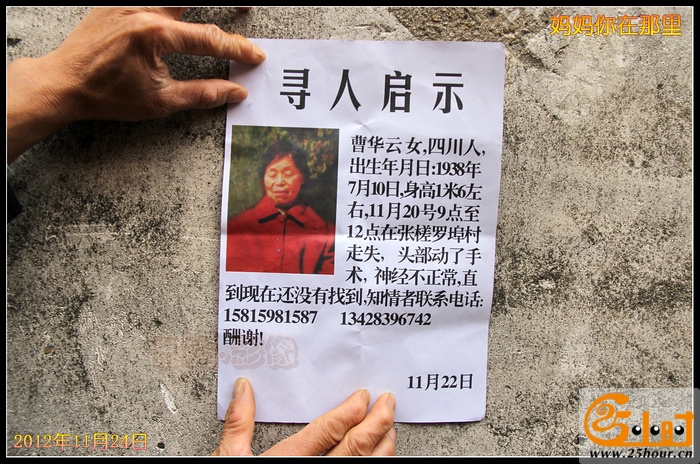 妈妈你在那里
寻人启示
曹华云 女,四川人,
出生年月日:1938年
7月10日,身高1米6左
右,11月20号9点至
12点在张槎罗埠村
走失,头部动了手
术,神经不正常,直
到现在还没有找到,知情者联系电话:
15815981587 13428396742
酬谢!
11月22日
2012年11月24日
25小时
www.25hour.cn